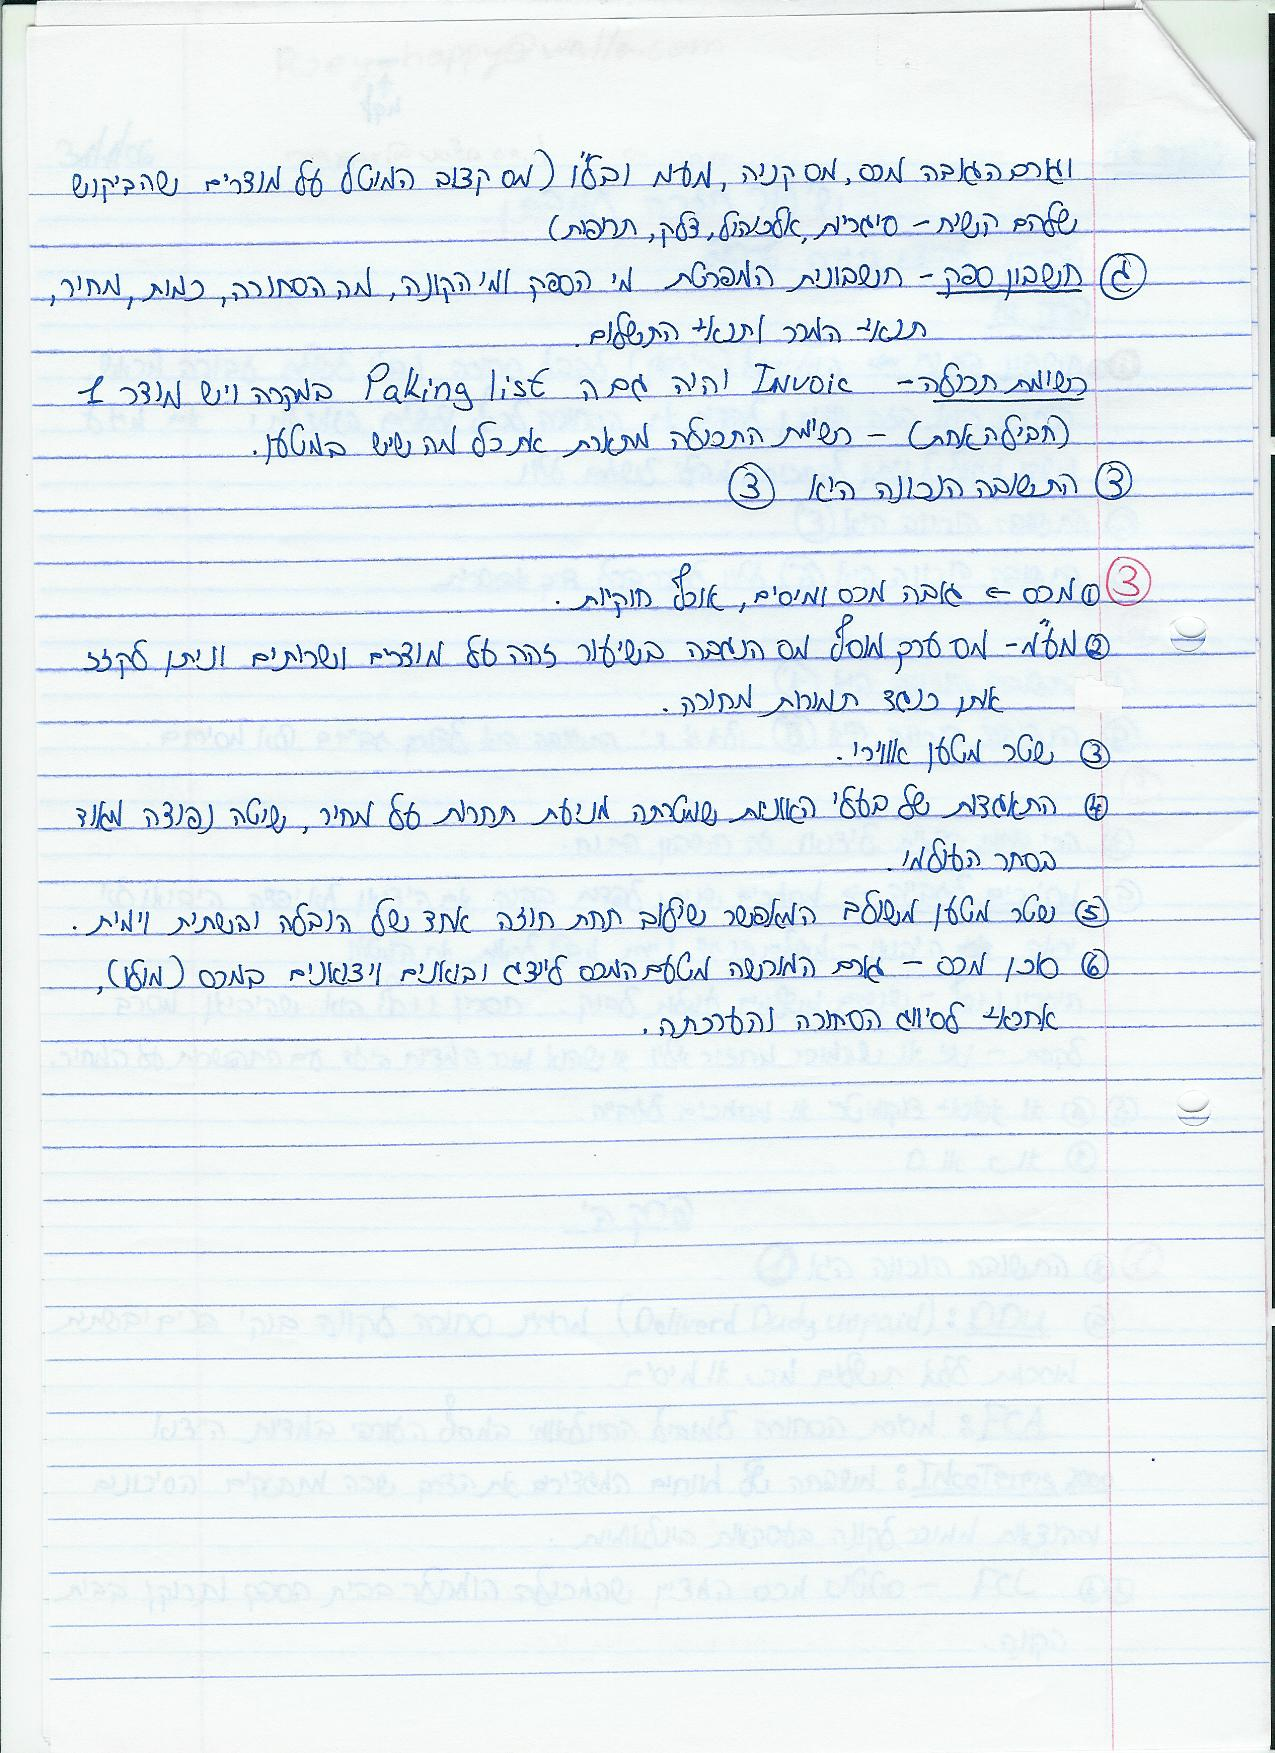 וגורם הגובה מכס, מס קניה, מע״מ ובלו (מס קצוב המיטל על מוצרים שהביקוש
שלהם קשיח - סיגריות, אלכוהול, דלק, תרופות)
ג חשבון ספק - חשבונית המפרטת מי הספק ומי הקונה, מה הסחורה, כמות, מחיר,
תנאי המכר ותנאי התשלום.
רשימת תכולה - Invoic והיה גם ה Paking list במקרה ויש מוצר 1
(חבילה אחת) - רשימת התכולה מתארת את כל מה שיש במטען.
3 התשובה הנכונה היא 3
3 1 מכס → גובה מכס ומיסים, אוכף חוקיות.
2 מע״מ - מס ערך מוסף מס הנגבה בשיעור זהה על מוצרים ושרותים וניתן לקזז
אותו כנגד תמורות מחורה.
3 שטר מטען אווירי.
4 התאגדות של בעלי האוניות שמטרתה מניעת תחרות על מחיר, שיטה נפוצה מאוד
בסחר העולמי.
5 שטר מטען משולב המאפשר שילוב תחת חוזה אחד של הובלה יבשתית וימית.
6 סוכן מכס - גורם המורשה מטעם המכס לייצג יבואנים ויצואנים במכס (מולו),
אחראי לסיווג הסחורה והערכתה.